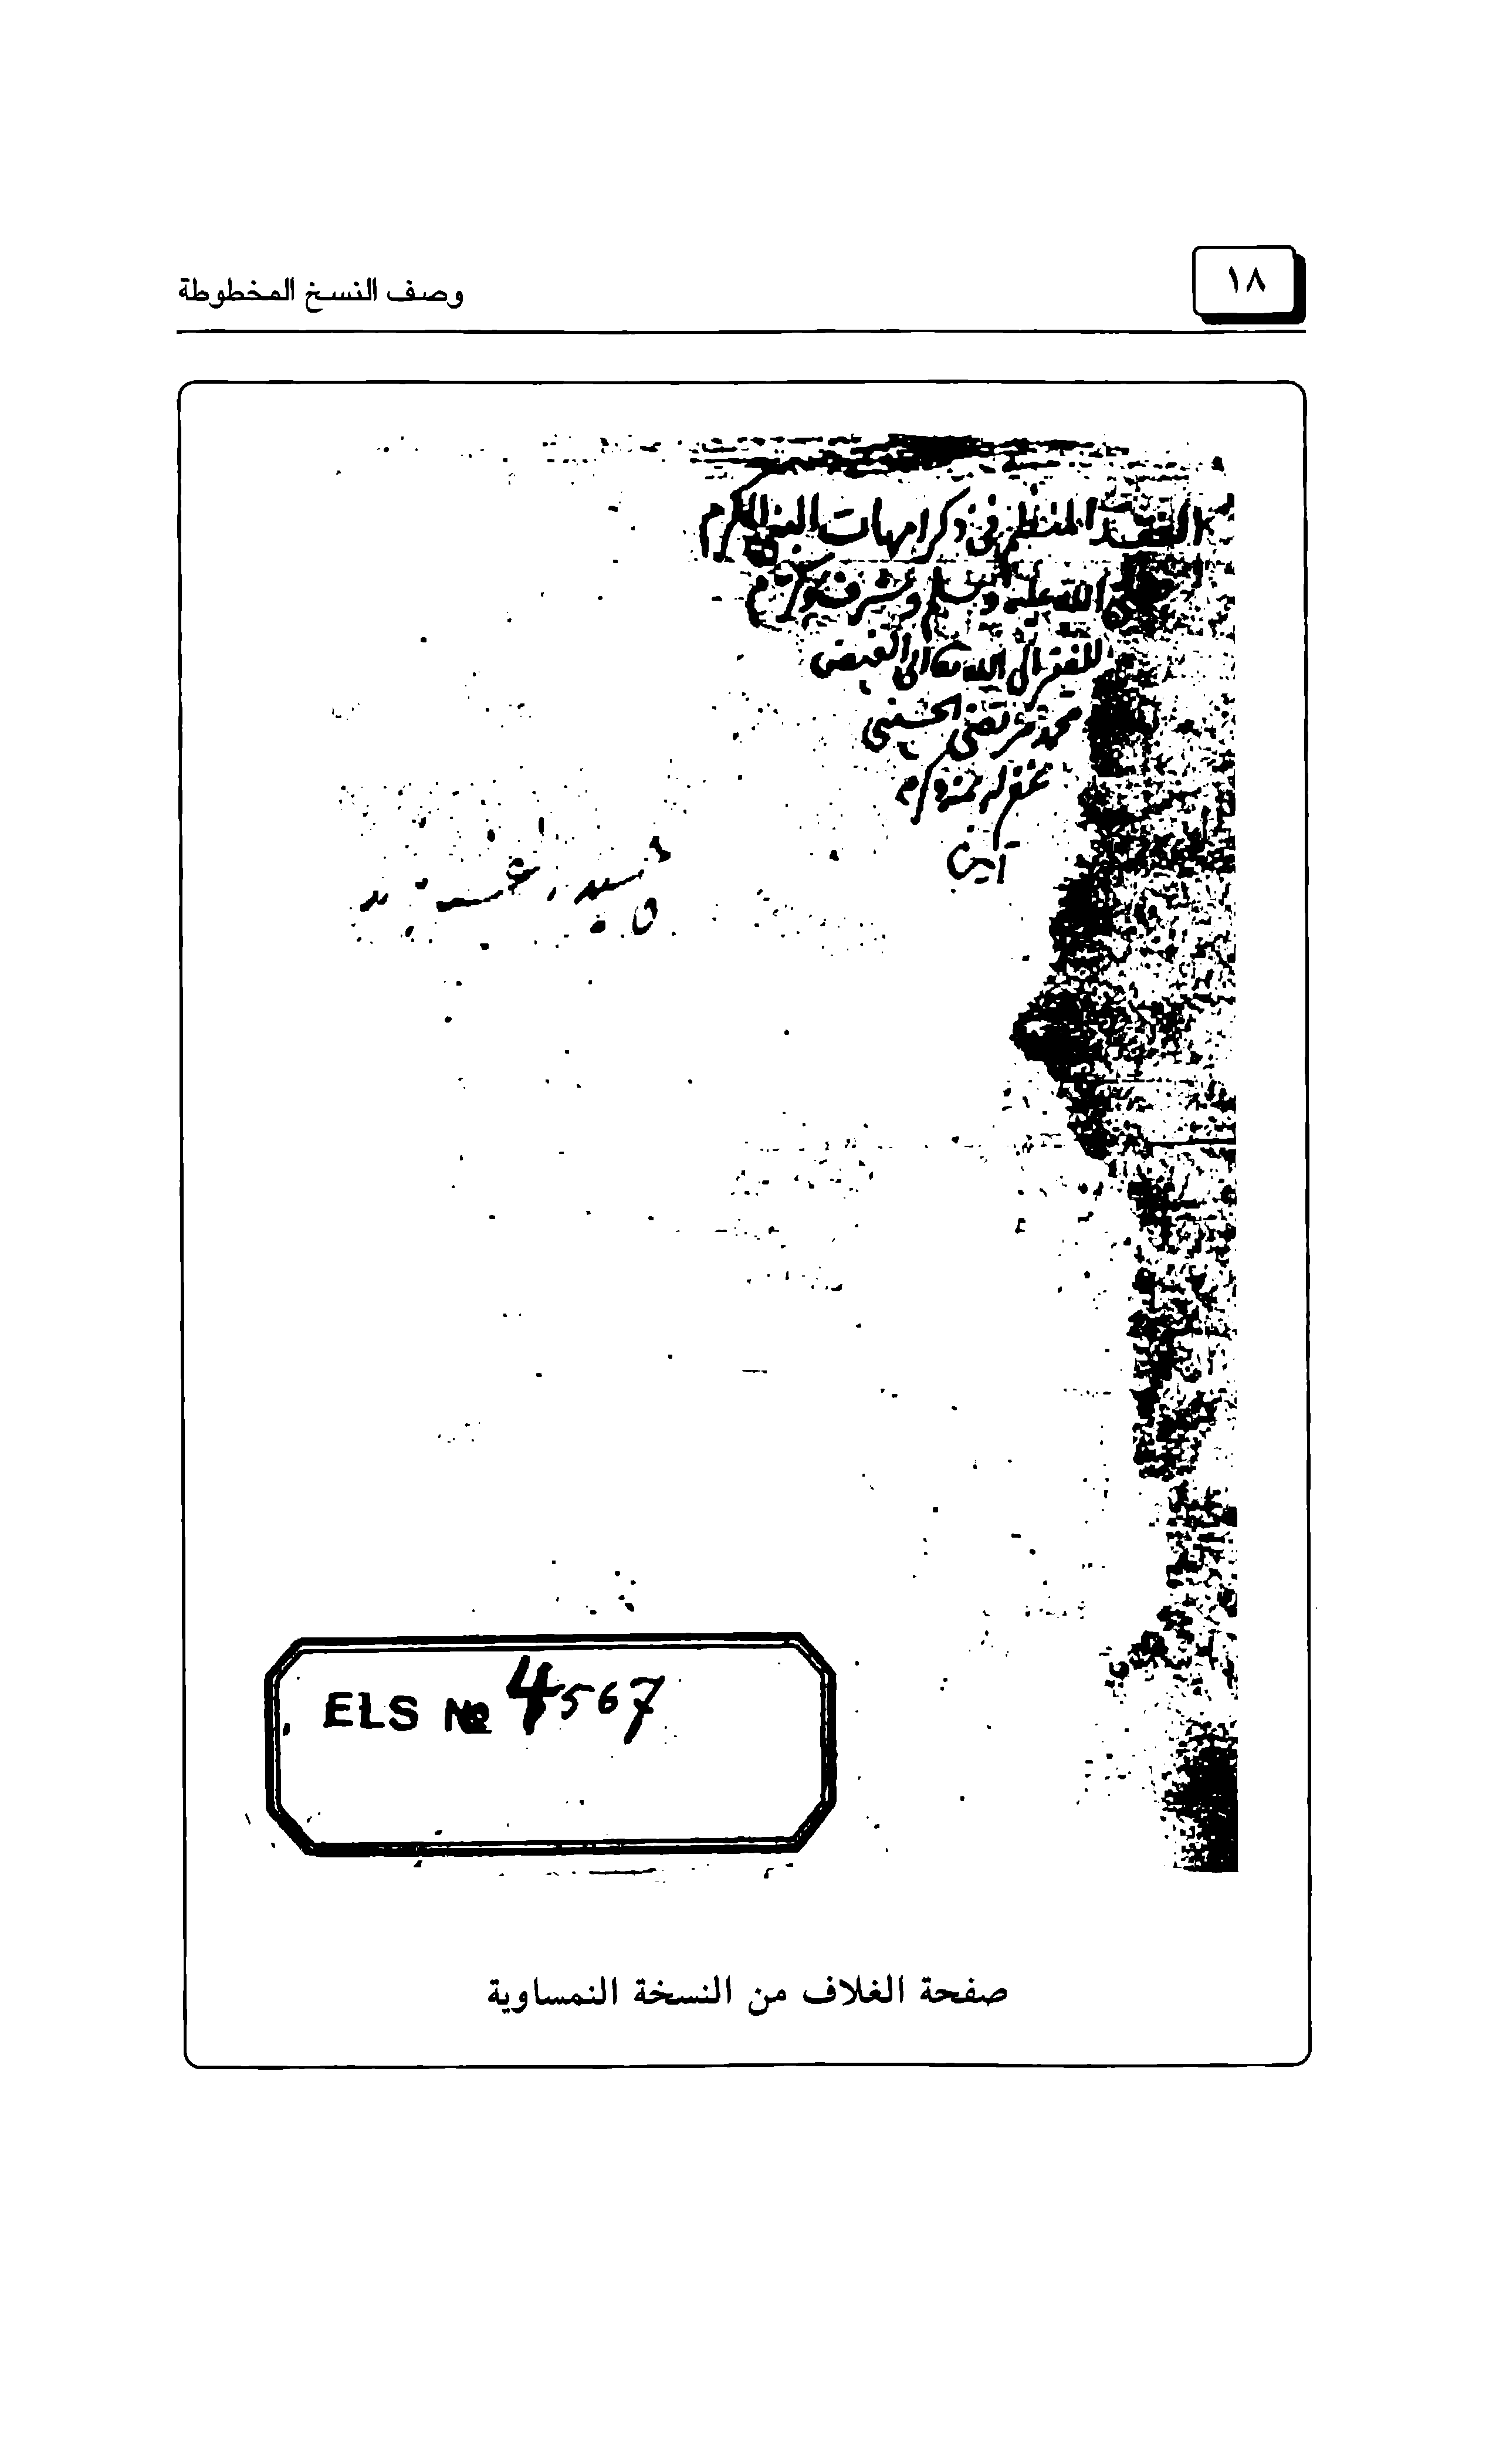 ١٨
وصف النسخ المخطوطة
العقد المنظم في ذكر امهات النبي الاكرم
صلى الله عليه وسلم وشرف وكرم
للفقير الى الله تعالى الفيض
محمد مرتضى الحسيني
غفر له بمنه وكرمه
آمين
ELS № 4567
صفحة الغلاف من النسخة النمساوية